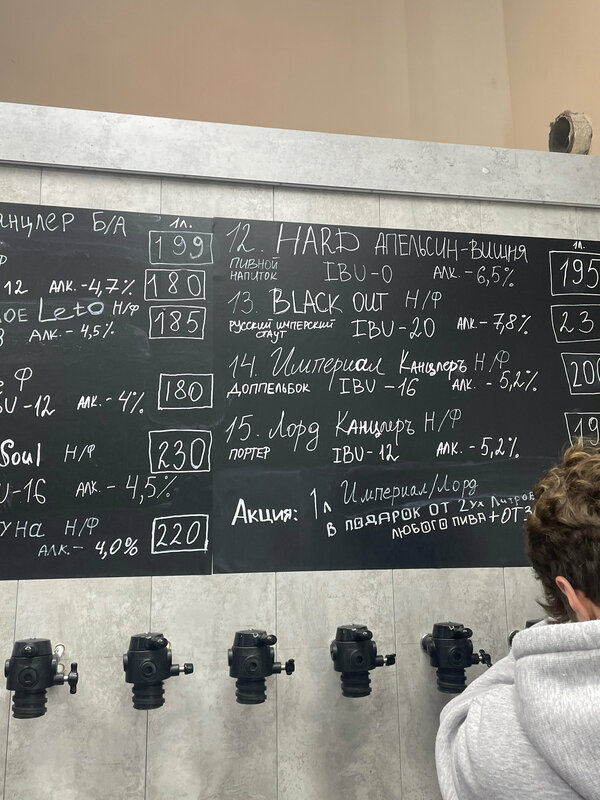 Б/А
1л.
199
Ф
12 АЛК. -4,7% 180
ОЕ Leto Н/Ф
АЛК. - 4,5% 185
Ф
-12 АЛК. - 4% 180
Soul Н/Ф
-16 АЛК. - 4,5% 230
Н/Ф
АЛК. - 4,0% 220
12. HARD АПЕЛЬСИН-ВИШНЯ
1л.
ПИВНОЙ
НАПИТОК IBU-0 АЛК. - 6,5% 195
13. BLACK OUT Н/Ф
РУССКИЙ ИМПЕРСКИЙ
СТАУТ IBU-20 АЛК. - 7,8% 23
14. Империал Канцлеръ Н/Ф
ДОППЕЛЬБОК IBU-16 АЛК. - 5,2% 200
15. Лорд Канцлеръ Н/Ф
ПОРТЕР IBU-12 АЛК. - 5,2% 19
Акция: 1л Империал/Лорд
В ПОДАРОК ОТ 2ух ЛИТРОВ
ЛЮБОГО ПИВА + ОТ